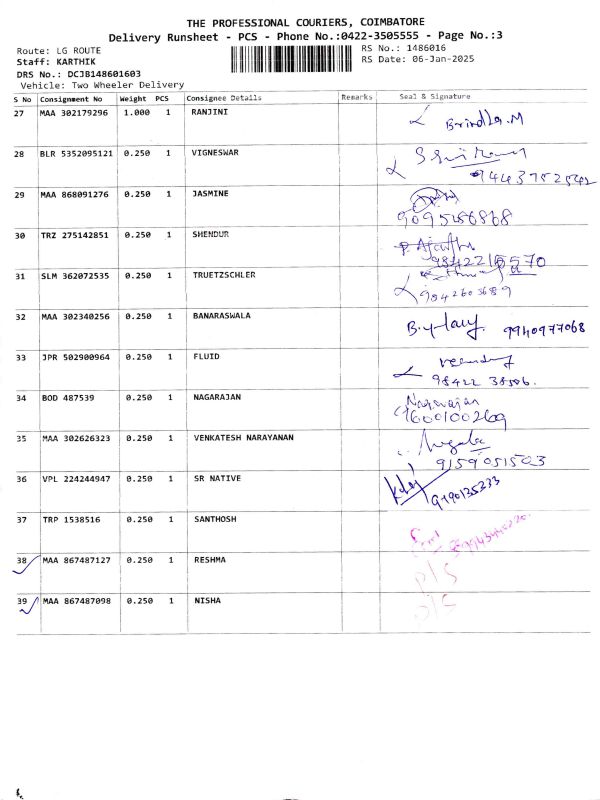 THE PROFESSIONAL COURIERS, COIMBATORE
Delivery Runsheet - PCS - Phone No.:0422-3505555 - Page No.:3
Route: LG ROUTE
RS No.: 1486016
Staff: KARTHIK
RS Date: 06-Jan-2025
DRS No.: DCJB148601603
Vehicle: Two Wheeler Delivery
S No Consignment No Weight PCS Consignee Details Remarks Seal & Signature
27 MAA 302179296 1.000 1 RANJINI
28 BLR 5352095121 0.250 1 VIGNESWAR
9443752542
29 MAA 868091276 0.250 1 JASMINE
30 TRZ 275142851 0.250 1 SHENDUR
31 SLM 362072535 0.250 1 TRUETZSCHLER
9842603689
32 MAA 302340256 0.250 1 BANARASWALA 9940977068
33 JPR 502900964 0.250 1 FLUID
34 BOD 487539 0.250 1 NAGARAJAN Nagarajan
9600100269
35 MAA 302626323 0.250 1 VENKATESH NARAYANAN
9159051503
36 VPL 224244947 0.250 1 SR NATIVE
37 TRP 1538516 0.250 1 SANTHOSH
38 MAA 867487127 0.250 1 RESHMA D/S
39 MAA 867487098 0.250 1 NISHA D/S